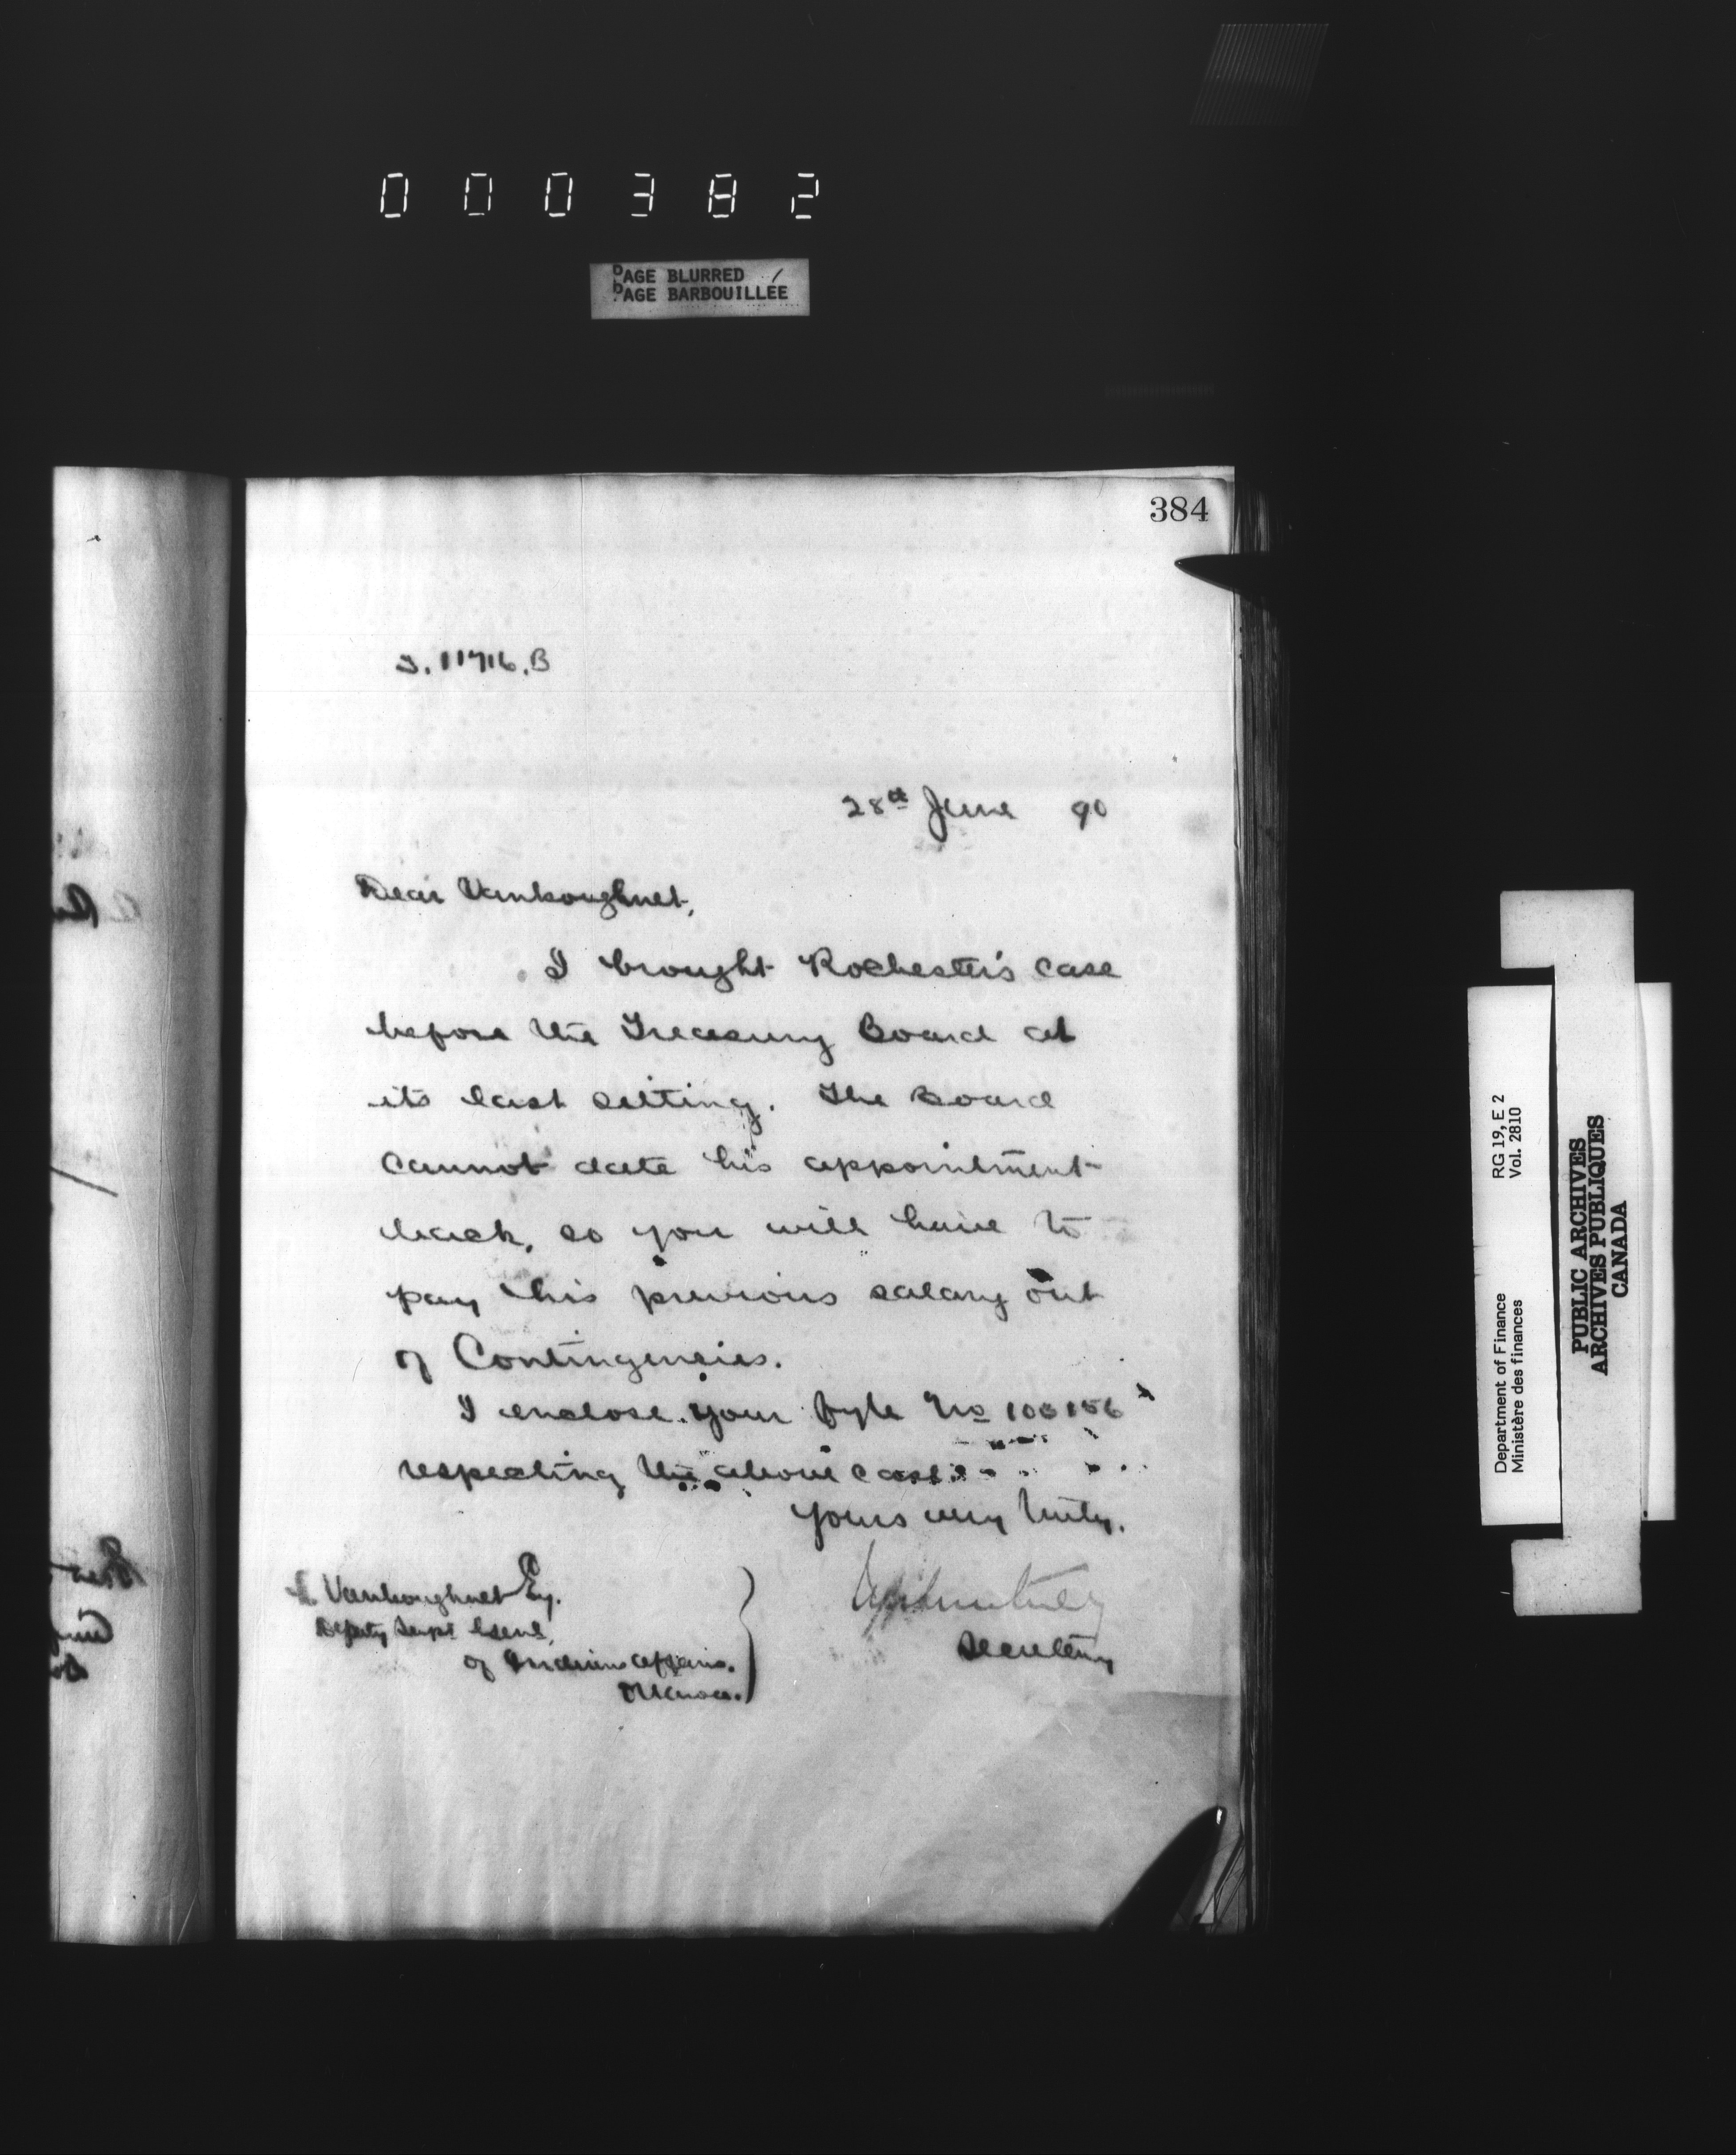 000382
PAGE BLURRED
PAGE BARBOUILLÉE
384
T. 11716. B
28th June 90
Dear Vankoughnet,
I brought Rochester's case
before the Treasury Board at
its last sitting. The Board
cannot date his appointment
back, so you will have to
pay his previous salary out
of Contingencies.
I enclose your fyle No 100156
respecting the above case.
Yours very truly,
Secretary
L. Vankoughnet Esq.
Deputy Supt Genl,
of Indian Affairs.
Ottawa.
Department of Finance RG 19, E 2
Ministère des finances Vol. 2810
PUBLIC ARCHIVES
ARCHIVES PUBLIQUES
CANADA